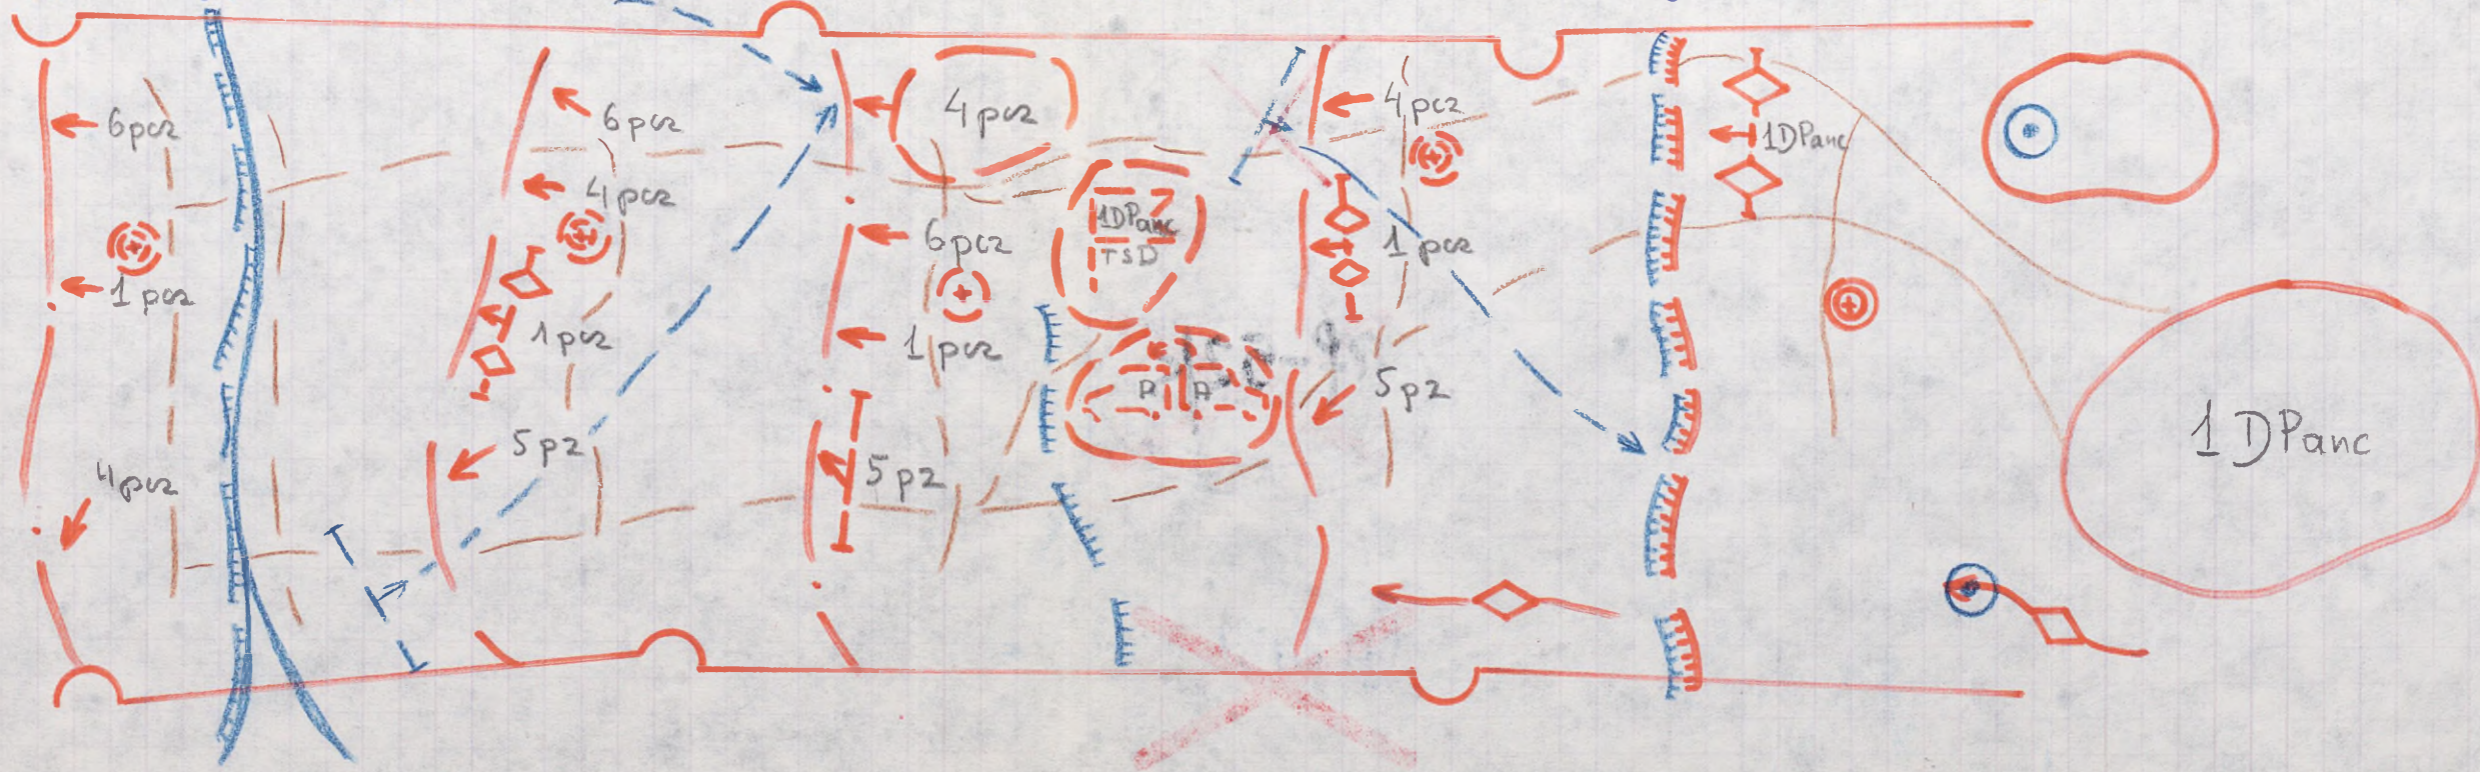 6pcz
1 pcz
4pcz
6 pcz
4 pcz
1 pcz
5 pz
4 pcz
6 pcz
1 pcz
5 pz
1DPanc
TSD
4 pcz
1 pcz
5 pz
1DPanc
1 DPanc